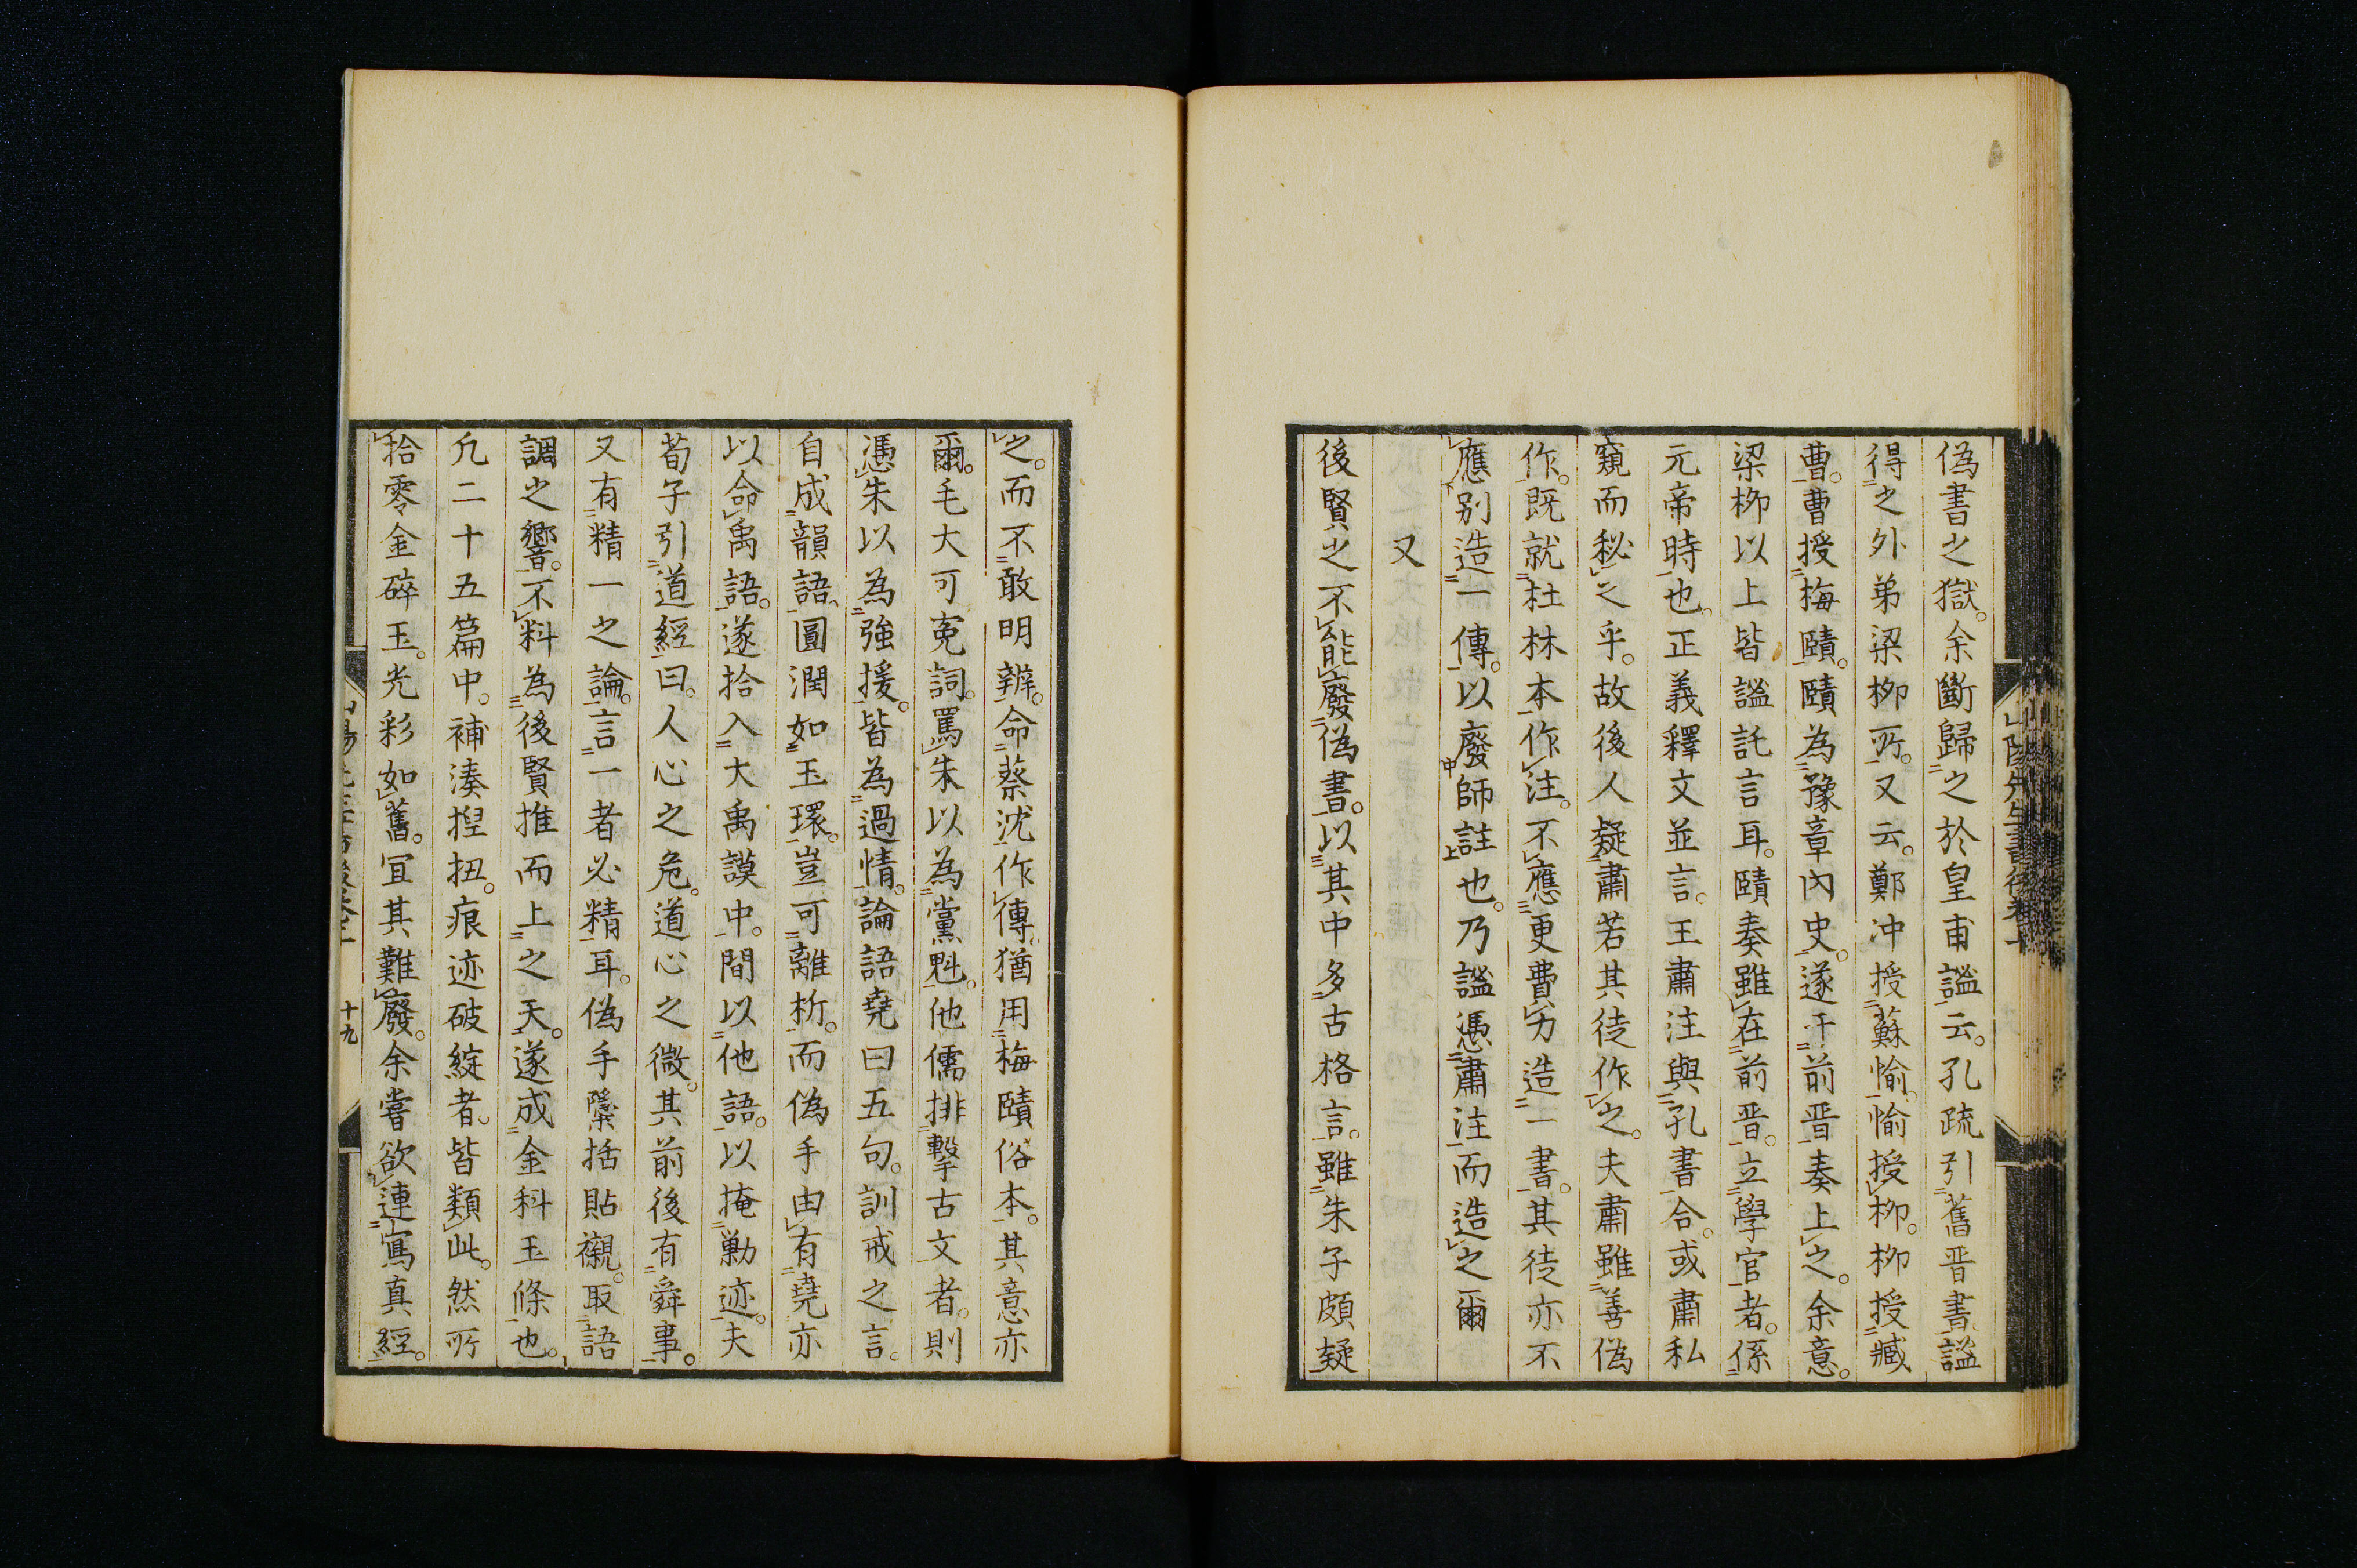 偽書之獄。余斷歸之於皇甫謐云。孔疏引舊晋書謐
得之外弟梁柳所。又云。鄭冲授蘇愉。愉授柳。柳授臧
曹。曹授梅賾。賾為豫章內史。遂于前晋奏上之。余意。
梁柳以上皆謐託言耳。賾奏雖在前晋。立學官者。係
元帝時也。正義釋文並言。王肅注與孔書合。或肅私
窺而秘之乎。故後人疑肅若其徒作之。夫肅雖善偽
作。既就杜林本作注。不應更費力造一書。其徒亦不
應別造一傳。以廢師註也。乃謐憑肅注而造之爾
又
後賢之不能廢偽書。以其中多古格言。雖朱子頗疑
山陽先生書後卷下
之。而不敢明辨。命蔡沈作傳。猶用梅賾俗本。其意亦
爾。毛大可寃詞。罵朱以為黨魁。他儒排擊古文者。則
憑朱以為強援。皆為過情。論語堯曰五句。訓戒之言。
自成韻語、圓潤如玉環。豈可離析。而偽手由有堯亦
以命禹語。遂拾入大禹謨中。間以他語。以掩勦迹。夫
荀子引道經曰。人心之危。道心之微。其前後有舜事。
又有精一之論。言一者必精耳。偽手隱括貼襯。取語
調之響。不料為後賢推而上之天。遂成金科玉條也。
凢二十五篇中。補湊捏扭。痕迹破綻者。皆類此。然所
拾零金碎玉。光彩如舊。宜其難廢。余嘗欲連寫真經。
十九